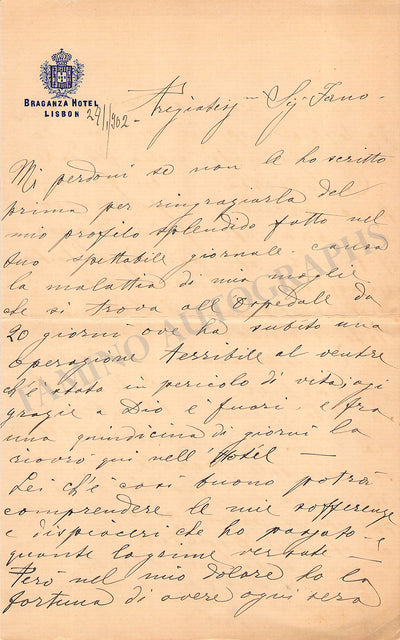 BRAGANZA HOTEL
LISBON
Sig. Fano -
Mi perdoni se non le ho scritto
prima per ringraziarla del
mio profilo splendido fatto nel
suo spettabile giornale. causa
la malattia di mia moglie
che si trova all'Ospedale da
20 giorni ove ha subito una
operazione terribile al ventre
ch'è stata in pericolo di vita, oggi
grazie a Dio è fuori. e fra
una quindicina di giorni la
riavrò qui nell'Hôtel —
Lei ch'è così buono potrà
comprendere le mie sofferenze
e dispiaceri che ho passato - e
quante lagrime versate —
Però nel mio dolore ho la
fortuna di avere ogni sera
TAMINO AUTOGRAPHS